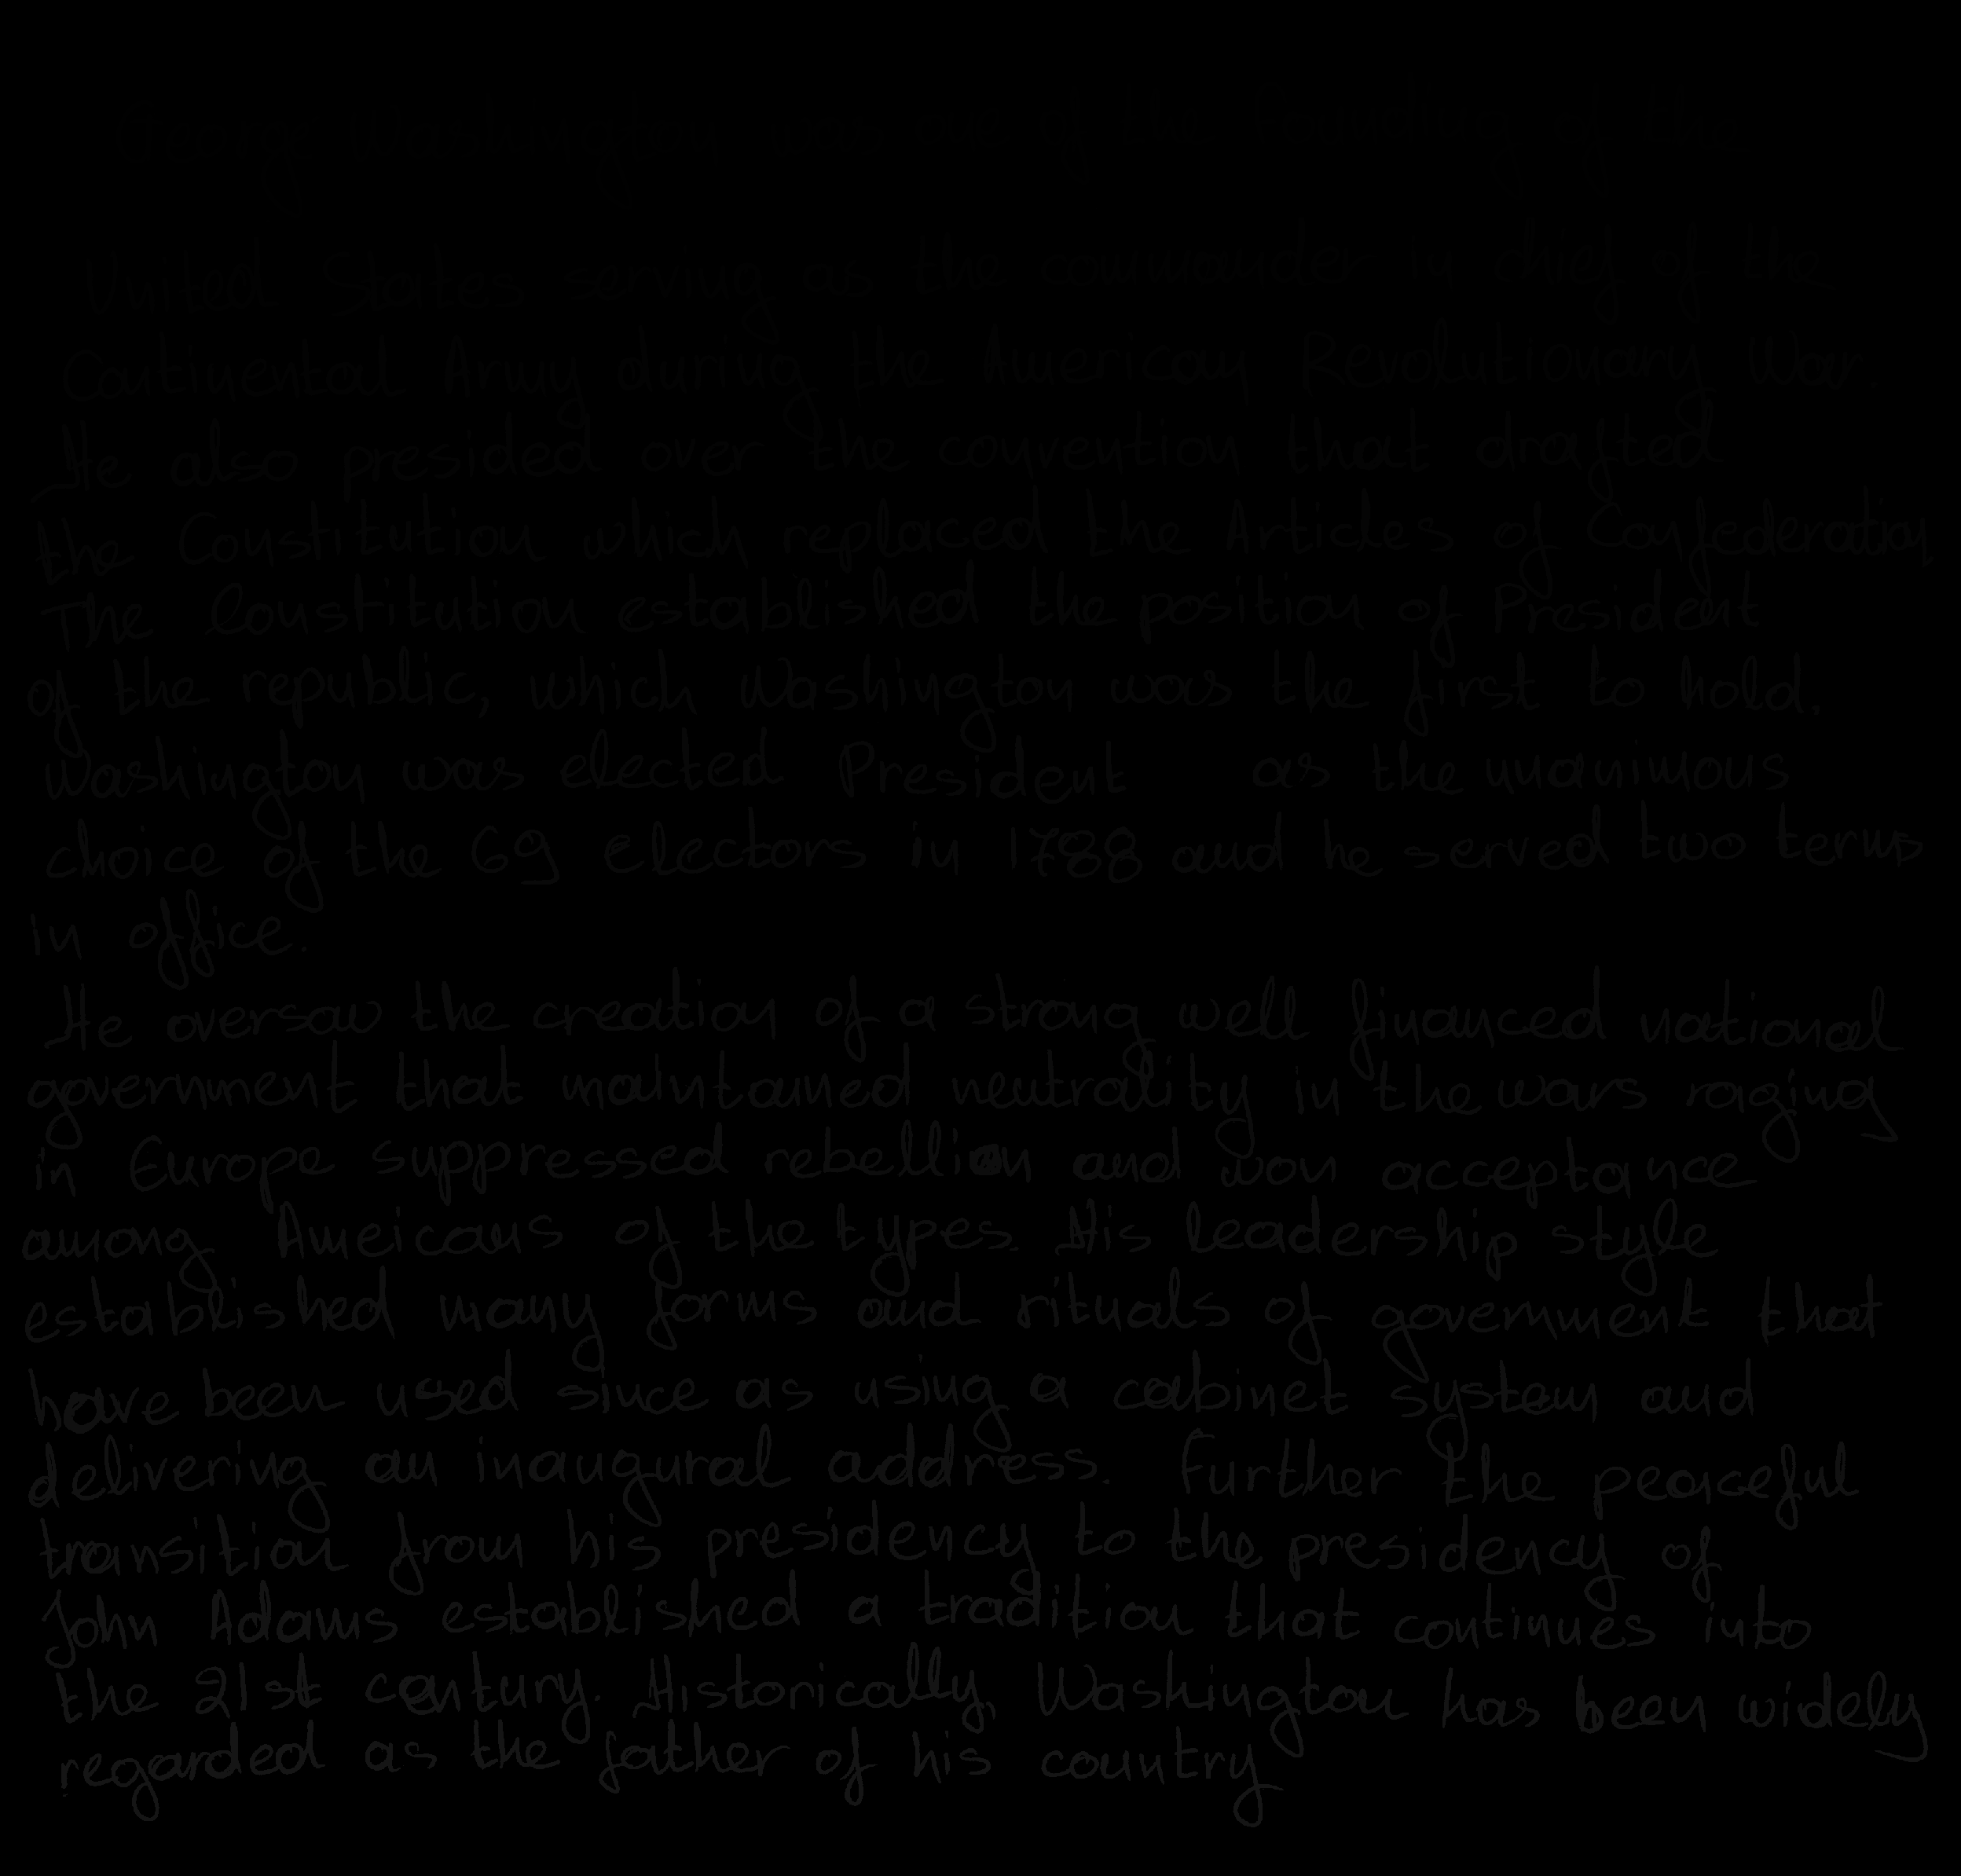 United States serving as the commander in chief of the
Continental Army during the American Revolutionary War.
He also presided over the convention that drafted
the Constitution which replaced the Articles of Confederation
The Constitution established the position of President
of the republic, which Washington was the first to hold.
Washington was elected President as the unanimous
choice of the 69 electors in 1788 and he served two terms
in office.
He oversaw the creation of a strong well financed national
government that maintained neutrality in the wars raging
in Europe suppressed rebellion and won acceptance
among Ameicans of the types. His leadership style
established many forms and rituals of government that
have been used since as using a cabinet system and
delivering an inaugural address. Further the peaceful
transition from his presidency to the presidency of
John Adams established a tradition that continues into
the 21st century. Historically, Washington has been widely
regarded as the father of his country